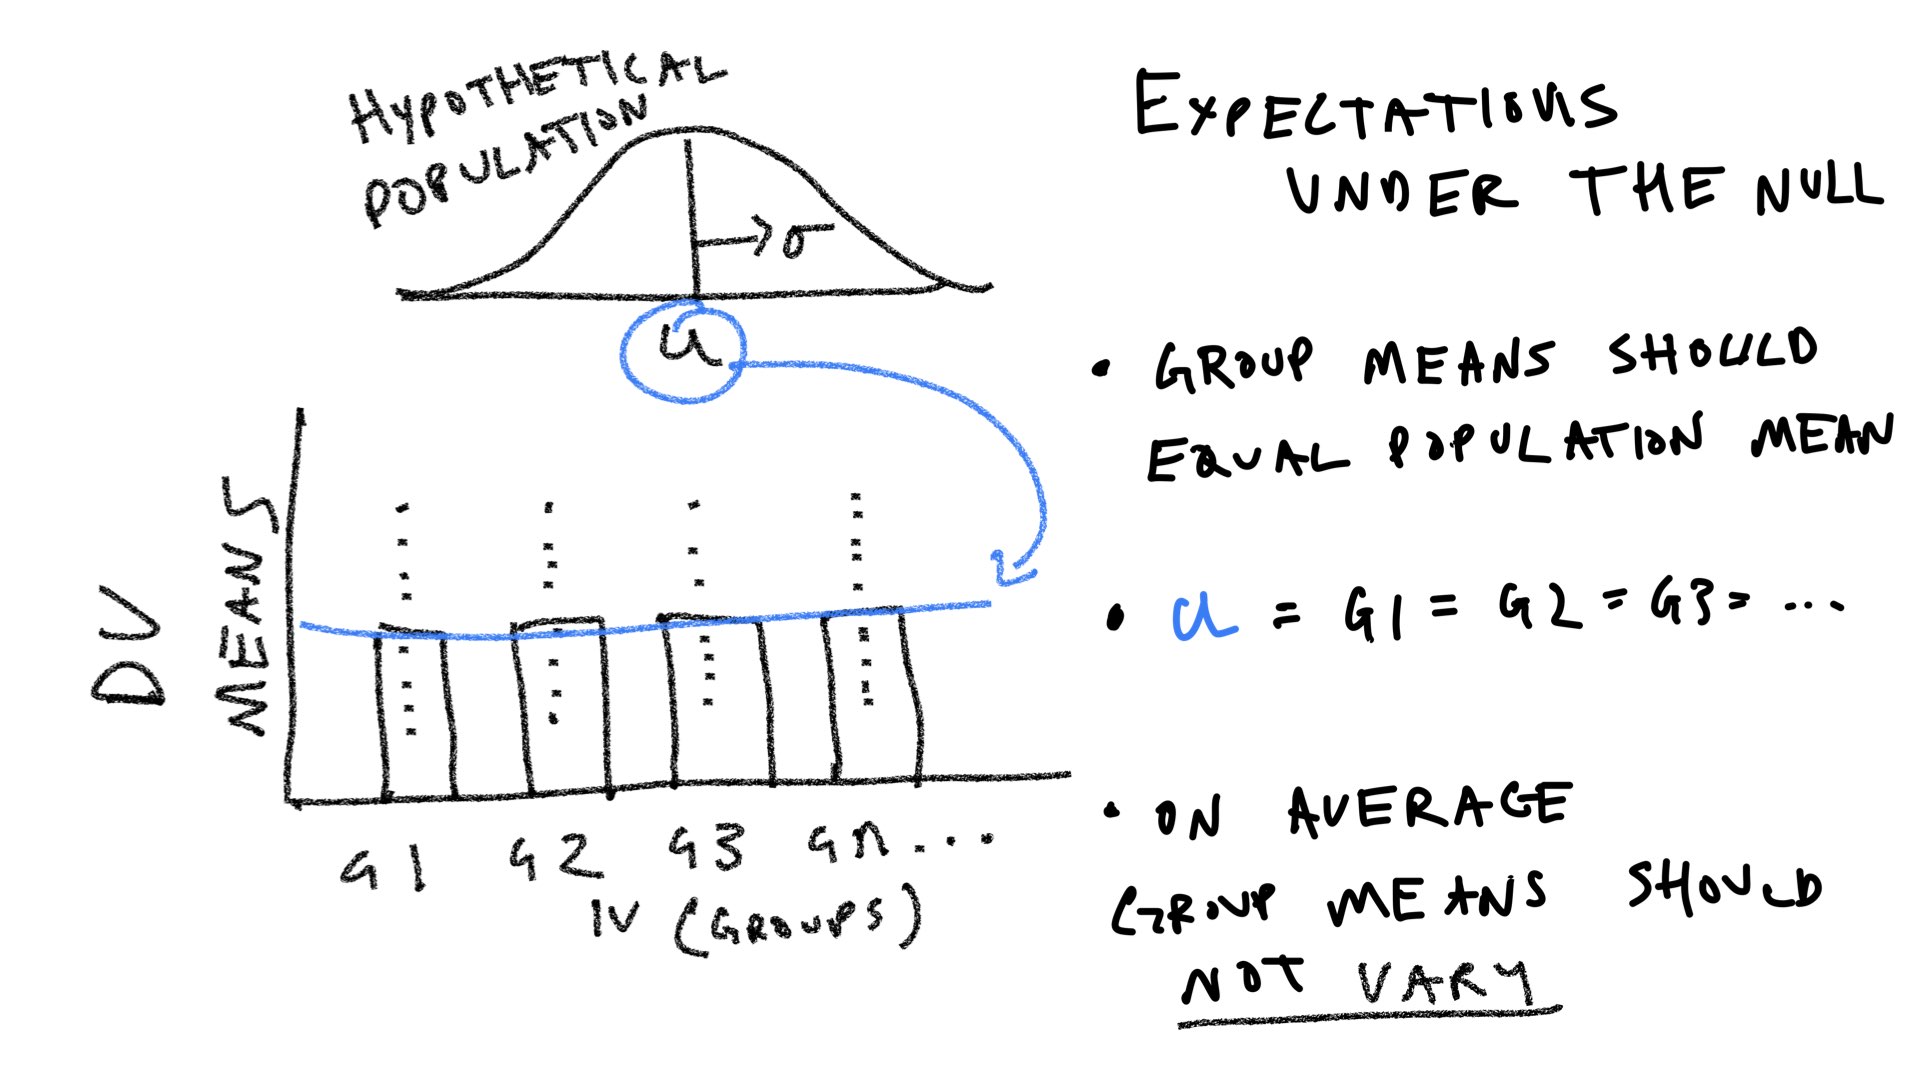 HYPOTHETICAL
POPULATION
σ
u
DV
MEANS
G1 G2 G3 Gn...
IV (GROUPS)
EXPECTATIONS
UNDER THE NULL
• GROUP MEANS SHOULD
EQUAL POPULATION MEAN
• u = G1 = G2 = G3 = ...
• ON AVERAGE
GROUP MEANS SHOULD
NOT VARY